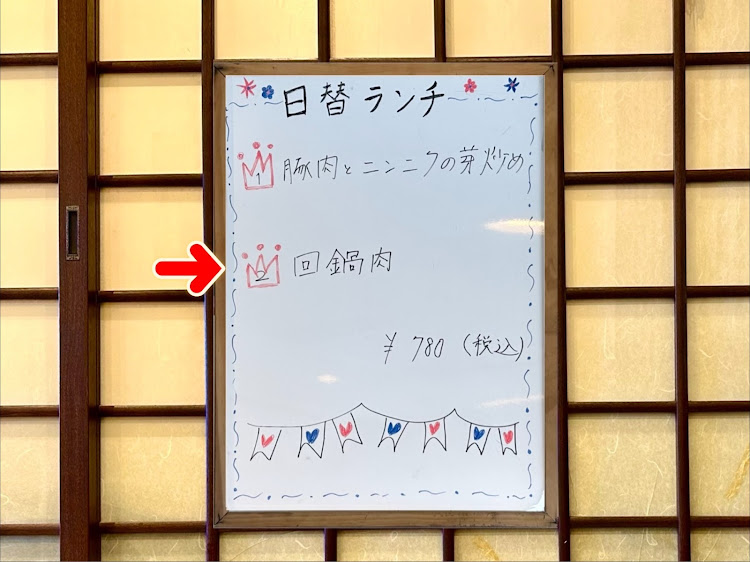 日替ランチ
1 豚肉とニンニクの芽炒め
2 回鍋肉
¥780(税込)